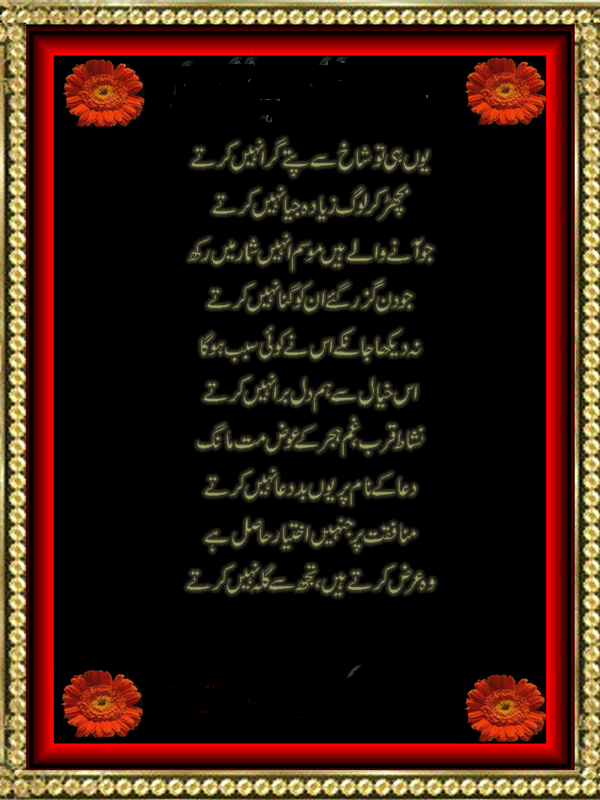 یوں ہی تو شاخ سے پتے گرا نہیں کرتے
بچھڑ کر لوگ زیادہ جیا نہیں کرتے
جو آنے والے ہیں موسم انہیں شمار میں رکھ
جو دن گزر گئے ان کو گنا نہیں کرتے
نہ دیکھا جانکے اس نے کوئی سبب ہوگا
اس خیال سے ہم دل برا نہیں کرتے
نشاط قرب غم ہجر کے عوض مت مانگ
دعا کے نام پر یوں بددعا نہیں کرتے
منافقت پر جنہیں اختیار حاصل ہے
وہ عرض کرتے ہیں، تجھ سے گلہ نہیں کرتے